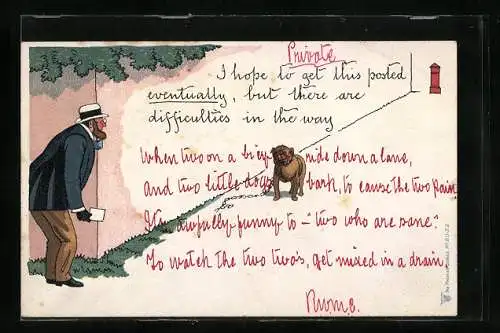 Private
I hope to get this posted
eventually, but there are
difficulties in the way
When two on a bicy- ride down a lane,
And two little dogs bark, to cause the two pain
It's awfully funny to - "two who are sane"
To watch the two two's, get mixed in a drain.